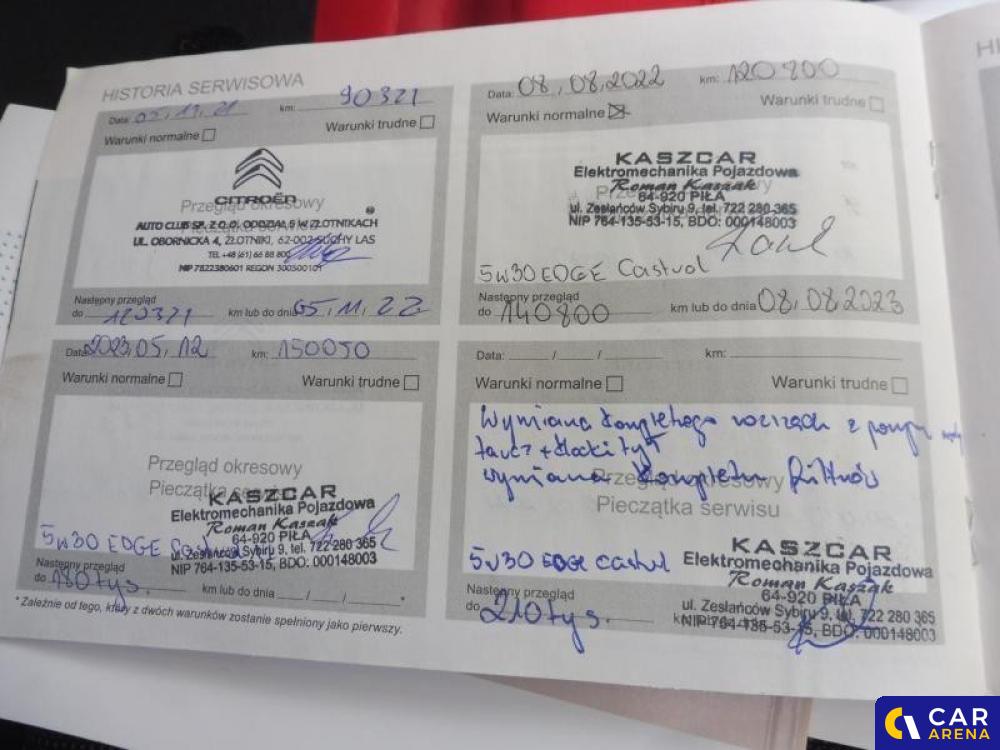 HISTORIA SERWISOWA
Data: 05.11.21 km: 90321
Warunki normalne Warunki trudne
CITROËN
Przegląd okresowy
AUTO CLUB SP. Z O.O. ODDZIAŁ 5 W ZŁOTNIKACH
UL. OBORNICKA 4, ZŁOTNIKI, 62-002 SUCHY LAS
TEL +48 (61) 66 88 800
NIP 7822380601 REGON 300500101
Następny przegląd
do 120321 km lub do dnia 05.11.22
Data: 08.08.2022 km: 120800
Warunki normalne Warunki trudne
KASZCAR
Elektromechanika Pojazdowa
Roman Kaszak
64-920 PIŁA
ul. Zesłańców Sybiru 9, tel. 722 280 365
NIP 764-135-53-15, BDO: 000148003
5w30 EDGE Castrol
Następny przegląd
do 140800 km lub do dnia 08.08.2023
Data: 2023.05.12 km: 150050
Warunki normalne Warunki trudne
Przegląd okresowy
Pieczątka serwisu
KASZCAR
Elektromechanika Pojazdowa
Roman Kaszak
64-920 PIŁA
5w30 EDGE
ul. Zesłańców Sybiru 9, tel. 722 280 365
NIP 764-135-53-15, BDO: 000148003
Następny przegląd
do 180 tys. km lub do dnia / / *
* Zależnie od tego, który z dwóch warunków zostanie spełniony jako pierwszy.
Data: / / km:
Warunki normalne Warunki trudne
Wymiana kompletnego rozrządu z pompą
tarcz + klocki tył
wymiana kompletu filtrów
Przegląd okresowy
Pieczątka serwisu
5w30 EDGE Castrol
KASZCAR
Elektromechanika Pojazdowa
Roman Kaszak
64-920 PIŁA
ul. Zesłańców Sybiru 9, tel. 722 280 365
NIP 764-135-53-15, BDO: 000148003
Następny przegląd
do 210 tys.
CAR
ARENA